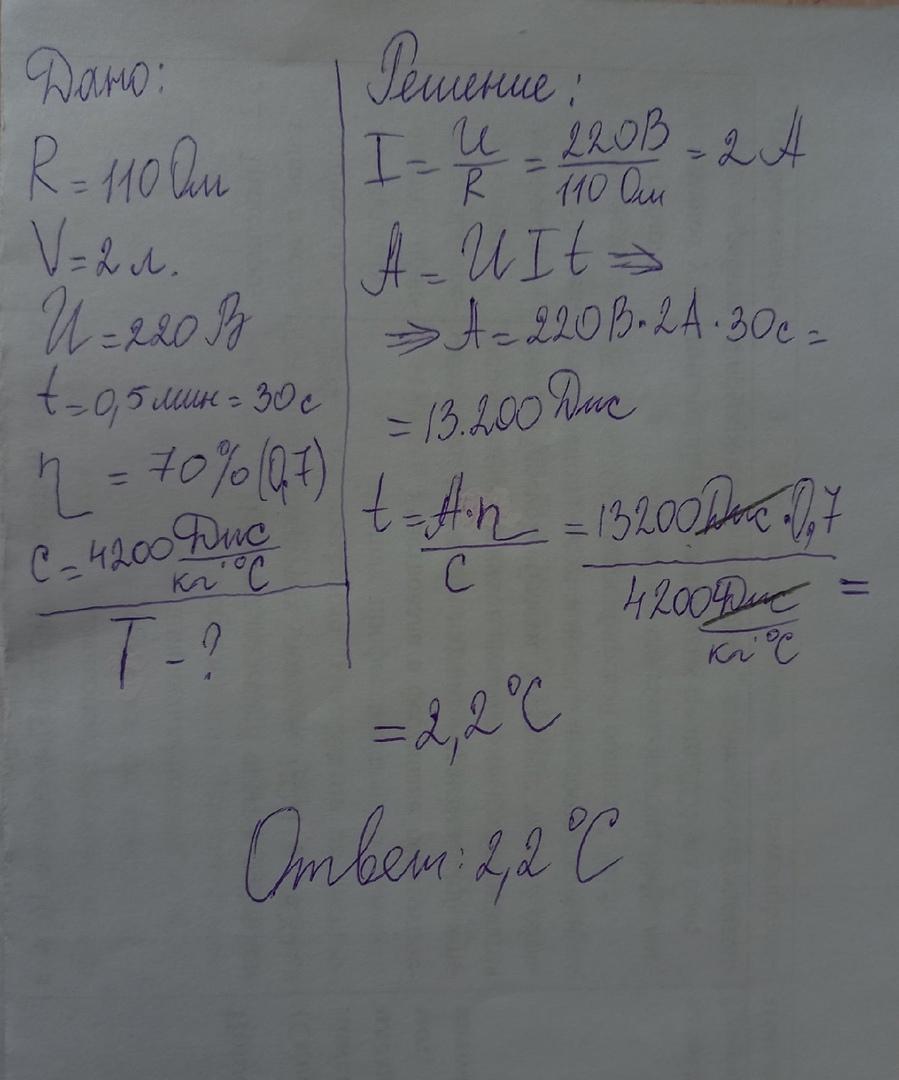 Дано:
R = 110 Ом
V = 2 л.
U = 220 В
t = 0,5 мин = 30 с
η = 70% (0,7)
c = 4200 Дж/кг·°C
T - ?
Решение:
I = U/R = 220В/110 Ом = 2 А
A = U I t ⇒
⇒ A = 220В · 2А · 30с =
= 13.200 Дж
t = A·η/C = 13200Дж · 0,7/4200Дж/кг·°C =
= 2,2 °C
Ответ: 2,2 °C